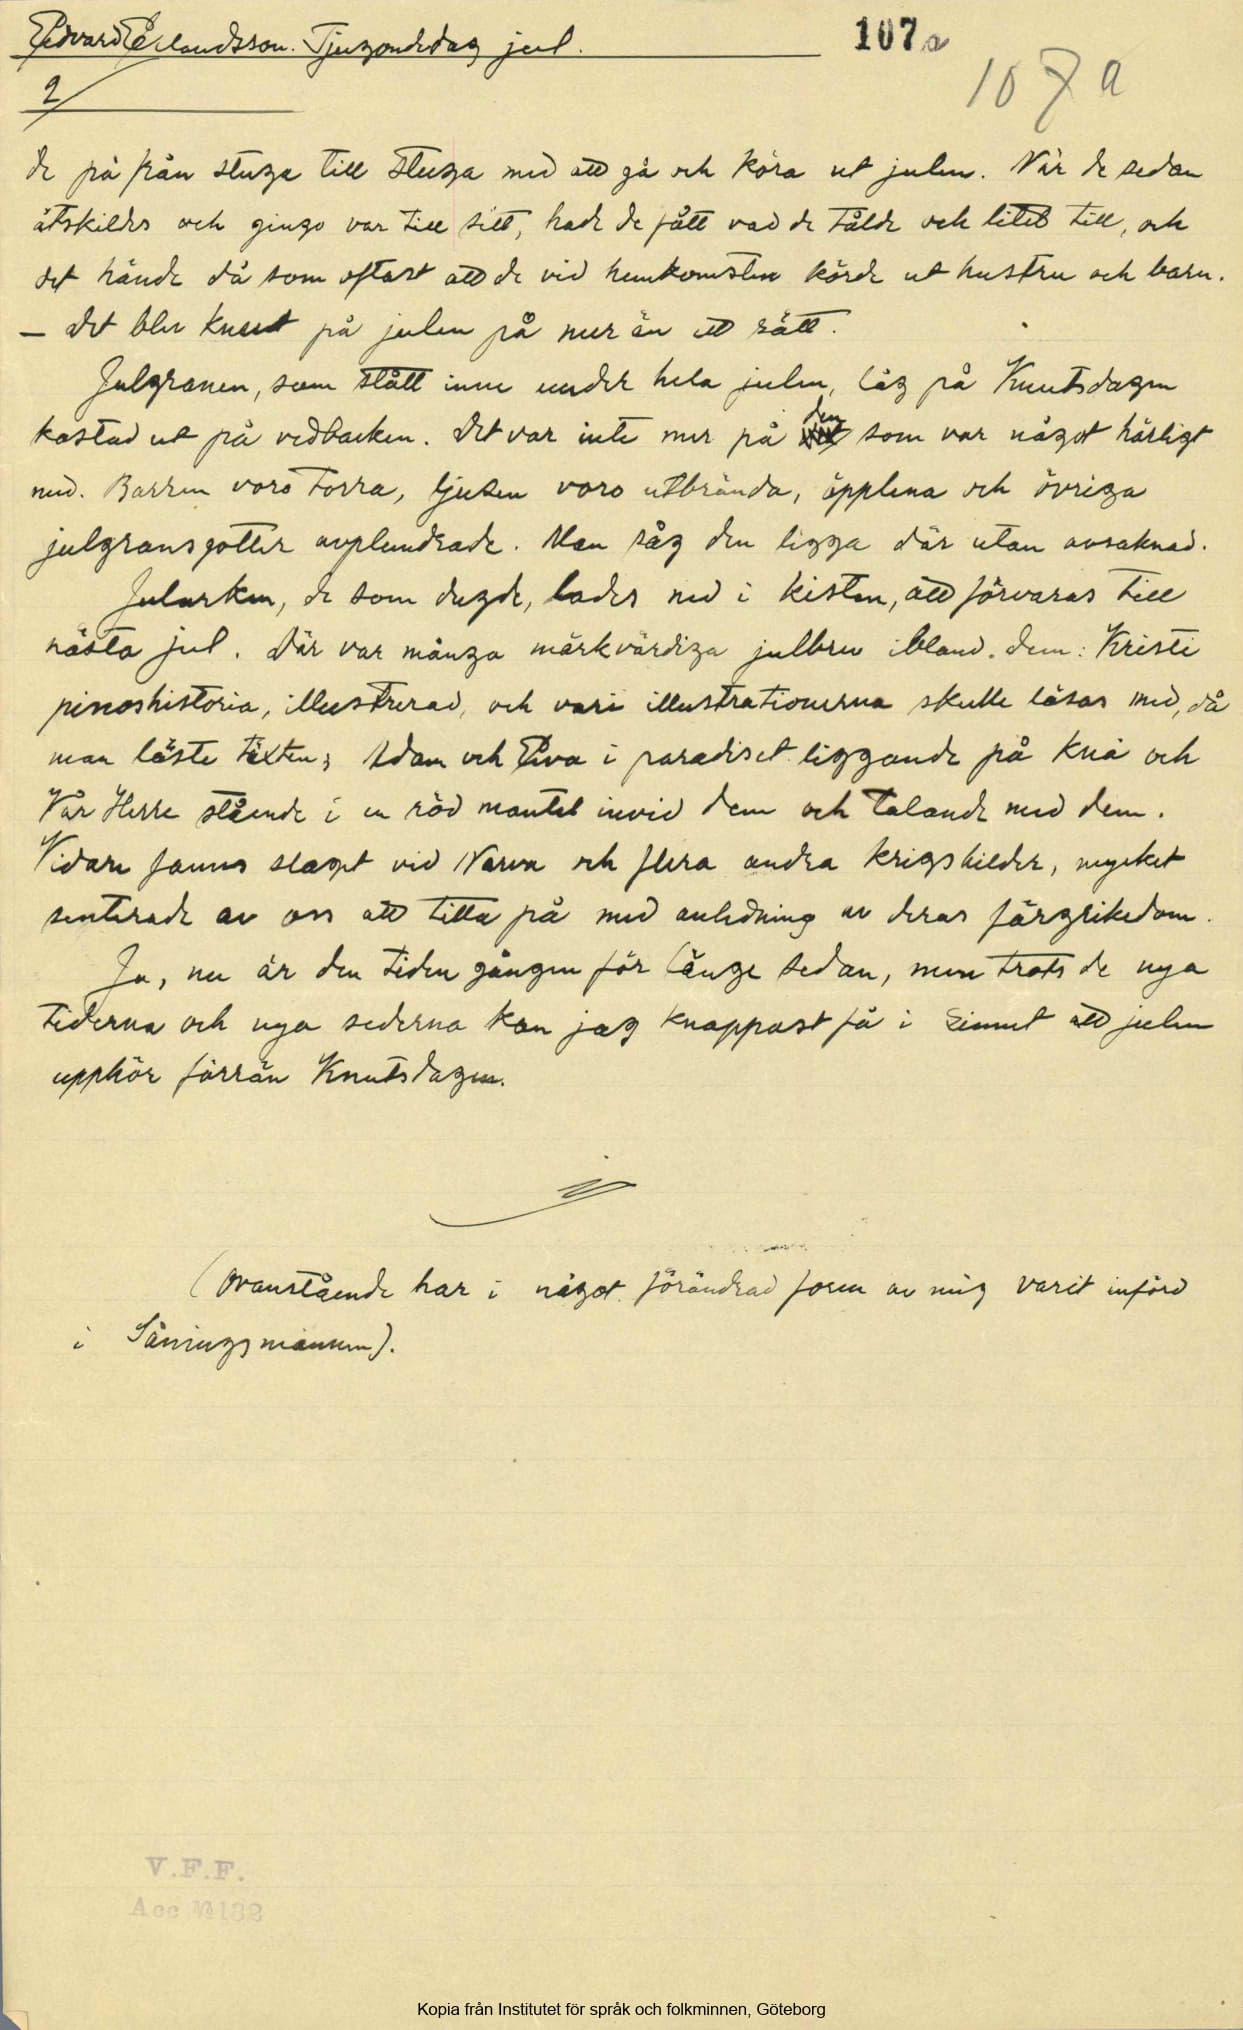 Edvard Erlandsson. Tjugondedag jul.
107a
107a
2/
de på från stuga till stuga med att gå och köra ut julen. När de sedan
åtskildes och gingo var till sitt, hade de fått vad de tålde och litet till, och
det hände då som oftast att de vid hemkomsten körde ut hustru och barn.
— Det blev knut på julen på mer än ett sätt.
Julgranen, som stått inne under hela julen, låg på Knutsdagen
kastad ut på vedbacken. Det var inte mer på den som var något härligt
med. Barren voro torra, ljusen voro utbrända, äpplena och övriga
julgransgotter avplundrade. Man såg den ligga där utan avsaknad.
Jularken, de som dugde, lades ned i kistan, att förvaras till
nästa jul. Där var många märkvärdiga julbrev ibland dem: Kristi
pinoshistoria, illustrerad, och vari illustrationerna skulle läsas med, då
man läste texten; Adam och Eva i paradiset liggande på knä och
Vår Herre stående i en röd mantel invid dem och talande med dem.
Vidare fanns slaget vid Narva och flera andra krigsbilder, mycket
senterade av oss att titta på med anledning av deras färgrikedom.
Ja, nu är den tiden gången för länge sedan, men trots de nya
tiderna och nya sederna kan jag knappast få i sinnet att julen
upphör förrän Knutsdagen.
(Ovanstående har i något förändrad form av mig varit införd
i Såningsmannen).
V.F.F.
Acc № 132
Kopia från Institutet för språk och folkminnen, Göteborg